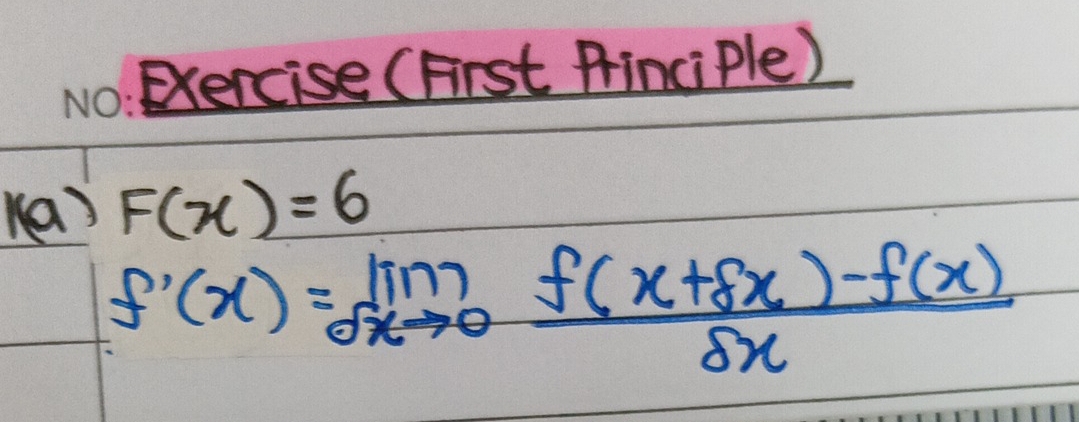 NO: Exercise (First Principle)
1(a) F(x) = 6
f'(x) = lim δx→0 f(x+δx)-f(x) / δx